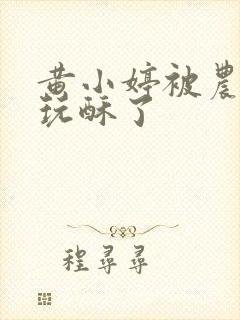 黄小婷被農
玩酥了
程尋尋